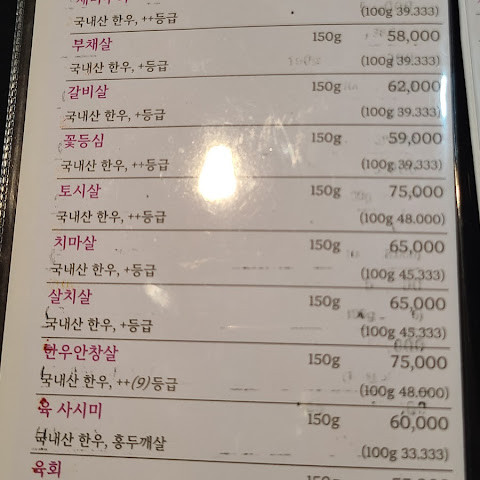 국내산 한우, ++등급 (100g 39.333)
부채살 150g 58,000
국내산 한우, +등급 (100g 39.333)
갈비살 150g 62,000
국내산 한우, +등급 (100g 39.333)
꽃등심 150g 59,000
국내산 한우, ++등급 (100g 39.333)
토시살 150g 75,000
국내산 한우, ++등급 (100g 48.000)
치마살 150g 65,000
국내산 한우, +등급 (100g 45.333)
살치살 150g 65,000
국내산 한우, +등급 (100g 45.333)
한우안창살 150g 75,000
국내산 한우, ++(9)등급 (100g 48.000)
육 사시미 150g 60,000
국내산 한우, 홍두깨살 (100g 33.333)
육회 150g